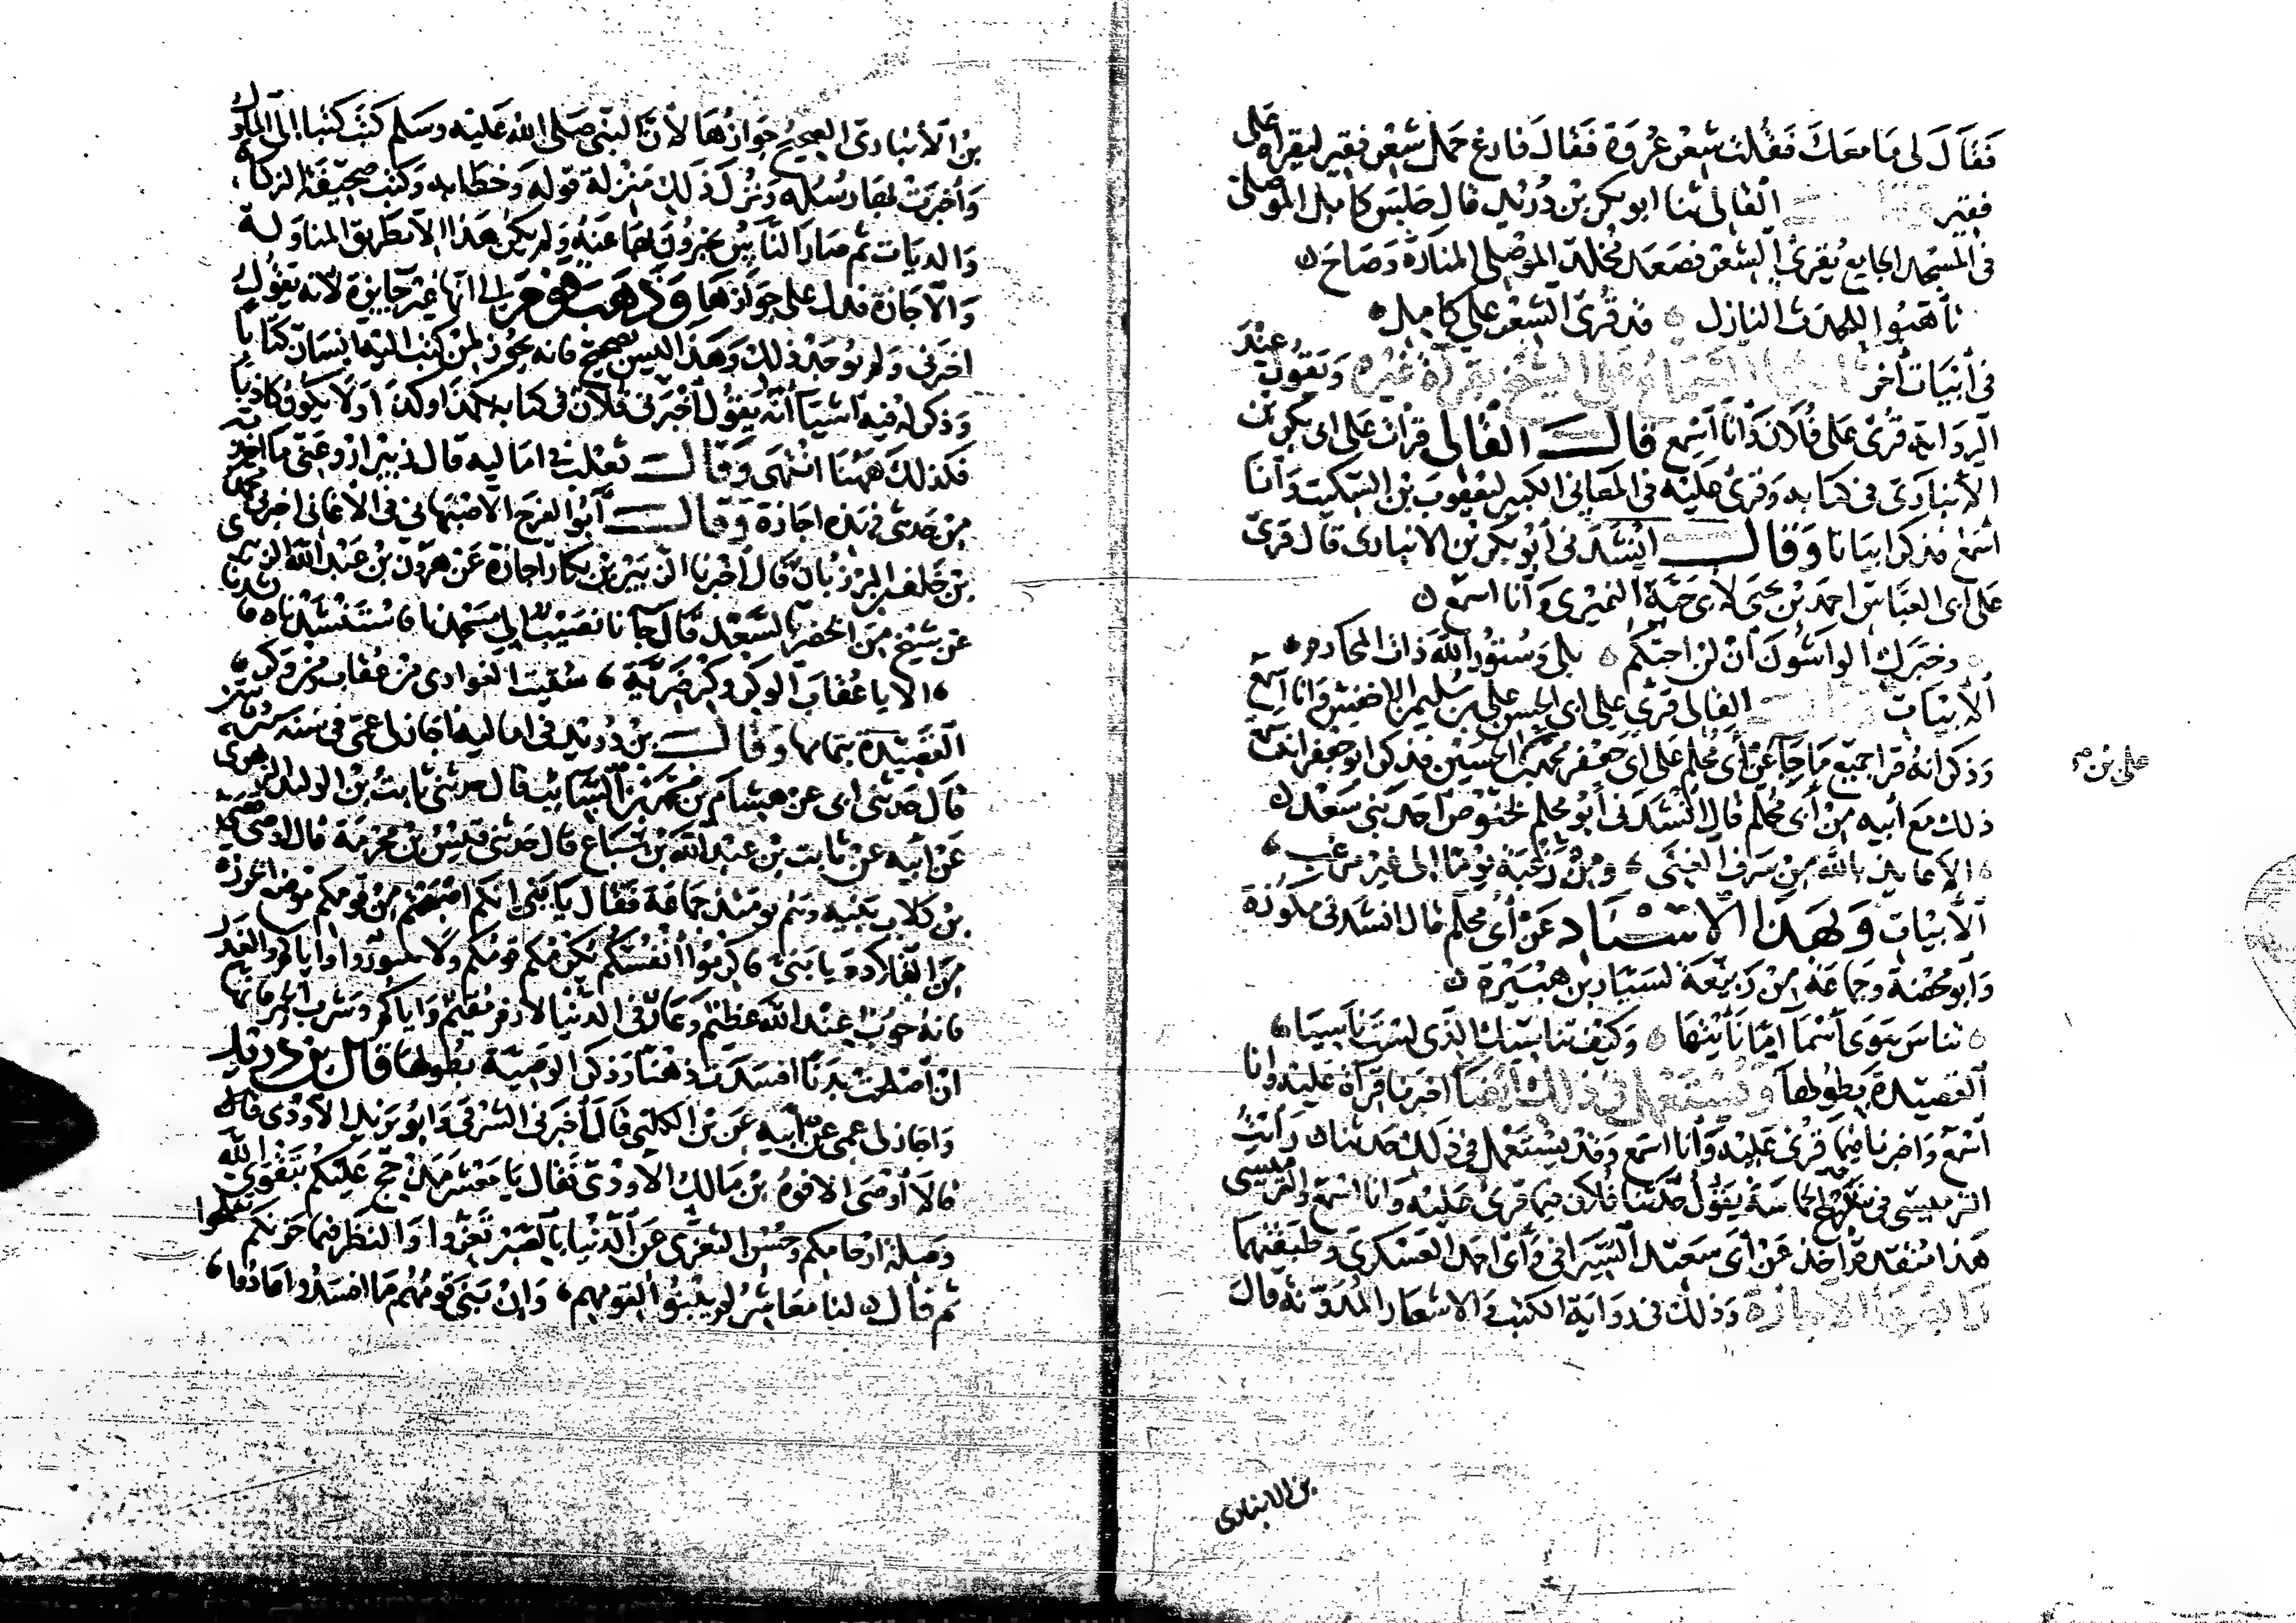 فَقَالَ لى مَا مَعَكَ فَقُلت شِعْر عُرْوَة فَقَالَ فَارِغ حَمَل شِعْر فقِير ليقرأه على
فقير القالى ثنا ابو بكر بن دُرَيْد قال جَلَسَ كامل الموصلى
فى المسْجد الجامع يُقرئ الشعر فصَعَد مخلد الموصلى المنارة وَصَاحَ
تأهبُوا للحدث النازل قد قُرئ الشعر على كامل
فى أبيَات أُخر السَّمَاع على الشيخ بقرآة غيره وَيقُول عِنْدَ
الروَاية قُرئ على فُلان وَأنا أسْمع قال القالى قرأت على ابى بكر بن
الأنبَارى فى كتابه وَقرئ عليه فى المعانى الكبير ليعقوبَ بن السكيت وَأنا
اسْمَع فذكر ابياتا وَقال انشَدَنى أبُو بكر بن الانبارى قال قرئ
على أبى العبَاس احمد بْن يحيَى لابى حيّة النميْرى وَأنا اسمع
وخبَّرك الواشُونَ أن لن احبّكم بلى وَسُتُور الله ذات المحارم
الأبيَات القالى قرئ على ابى الحسن على بن سُليمن الاخفش وَانا اسمع
وَذكر انهُ قرأ جميع مَا جآء عن أبى مُحلم على ابى جعفر محمد بن الحسين فذكر ابو جعفر انه سمع
على بن
ذلك مَع أبيه من أبى مُحلم قال انشَدَنى أبُو محلم لخنّوص احد بنى سَعْد
الا عائذ بالله من سَرف الغِنَى ومن رغبَة يوْمًا الى غير مرغب
الأبيَات وَبهَذَا الاسْنَاد عَن أبى محلم قال انشدنى مكوزة
وَأبو محضة وَجمَاعَة من رَبيعَة لسَيّار بن هُبَيْرَة
تناسَ هَوَى أسْمآ امّا نَأَيْتَها وَكَيْفَ تناسيك الذى لسْتَ نَاسِيَا
القصيدَة بطولها وَيُسْتعمَل فى ذلك ايضا اخبرنا قرآة عليه وانا
أسْمع وَاخبرنا فيما قرئ عَليْه وَأنا اسمع وَقد يسْتَعمل فى ذلك حَدّثنا رَأيْتُ
الترميسى فى شرح الحماسَة يَقُول حَدّثنا فُلان فيما قرئ عَليْه وَأنا اسْمَع وَالترميسى
هَذا متقدم أخذ عَنْ أبى سَعيد السّيرَافى وَأبى احمد العَسْكرى وَطبقتهما
رَابعهَا الاجازة وَذلك فى روَاية الكتب وَالاشعار المُدَوّنة قال
بن الانبارى
بنُ الأنبَارى الصحيح جَوازهَا لأنَّ النبى صَلى الله عَليْه وسَلم كتَبَ كتبًا الى الملوك
وَأخبرَتْ بها رسُله وَنزل ذَلك مَنْزلة قوله وَخطابه وَكتب صحيفة الزكاة
وَالديَات ثم صَارَ النَّاس يخبرُونَ بها عَنه وَلم يكن هَذا الا بطريق المناولة
وَالاجَازة فدل على جوَازهَا وَذهَبَ قوم الى انها غير جَايزة لأنه يقول
اخبرَنى وَلم يُوجد ذلك وَهَذا ليس بصحيح فانه يجوز لمن كتب اليه انسَان كتابًا
وَذكر له فيه اشيآ أنّه يَقول أخبرَنى فلان فى كتابه بكذَا وكذَا ولا يكون كاذبًا
فكذلكَ هَهُنَا انتهى وَقال ثعلب فى اماليه قال زبير ارو عَنى مَا اخذته
من حَديثى هذه اجَازة وَقال أبُو الفرج الاصْبَهانى فى الأغَانى اخبرنى محمد
بْن خلف المرزبَان قال أخبرنا الزبَيْر بن بكار اجازة عَن هرون بن عَبد الله الزهرى
عَن شيخ من الخضر بالسَّعْد قال جآنا نُصَيب الى مسْجدنا فاسْتنشدنَاه فانشدنا
الا يا عُقابَ الوكر وكر ضَريّة سُقيت الغوادى من عقاب ومن وكر
القصيدَة بتمامها وَقال بن دُرَيد فى اماليه أجَاز لى عَمى فى سَنة ستين
قال حَدثنى أبى عَنْ هشام بن محمد بن السّايب قال حدثنى ثابت بْن الوليد الزهرى
عَن أبيه عَنْ ثابت بْن عبد الله بن سِبَاع قال حَدثنى قيسُ بْن مخرمَة قال اوصى قصى
بن كلاب بَنيه وَهُم يومَئذ جماعَة فَقال يَا بَنىّ انكم اصْبَحتم من قومكم موضع الخرزة
من القلادَة يا بَنى فاكرمُوا أنفُسَكم تكرمكم قومُكم ولا تبغوا وايّاكم والغَدر
فانهُ حُوبٌ عنْدَ الله عَظيم وَعَارٌ فى الدنيا لازم مُقيم وَاياكم وَشرب الخمر فانها
ان أصْلحَت بدَنًا افسَدَت ذهْنًا وَذكر الوَصية بطولها قال بن دريد
وَاجاز لى عمى عَن أبيه عَن بْن الكلبى قال أخبرَنى الشرقى وَابُو يَزيد الاودى قال
قالا أوْصَى الافوهُ بْن مَالك الأودى فقال يَا مَعْشر مَذحج عَليْكم بتقوَى الله
وَصلة ارحامكم وَحُسْن التعزى عَن الدنيا بالصّبر تعزوا وَالنظر فيما حزنكم تفلحوا
ثم قال لنا معاشرُ لم يبْنُوا لقومهم وَان بَنى قومُهُم مَا افسَدُوا عادُوا